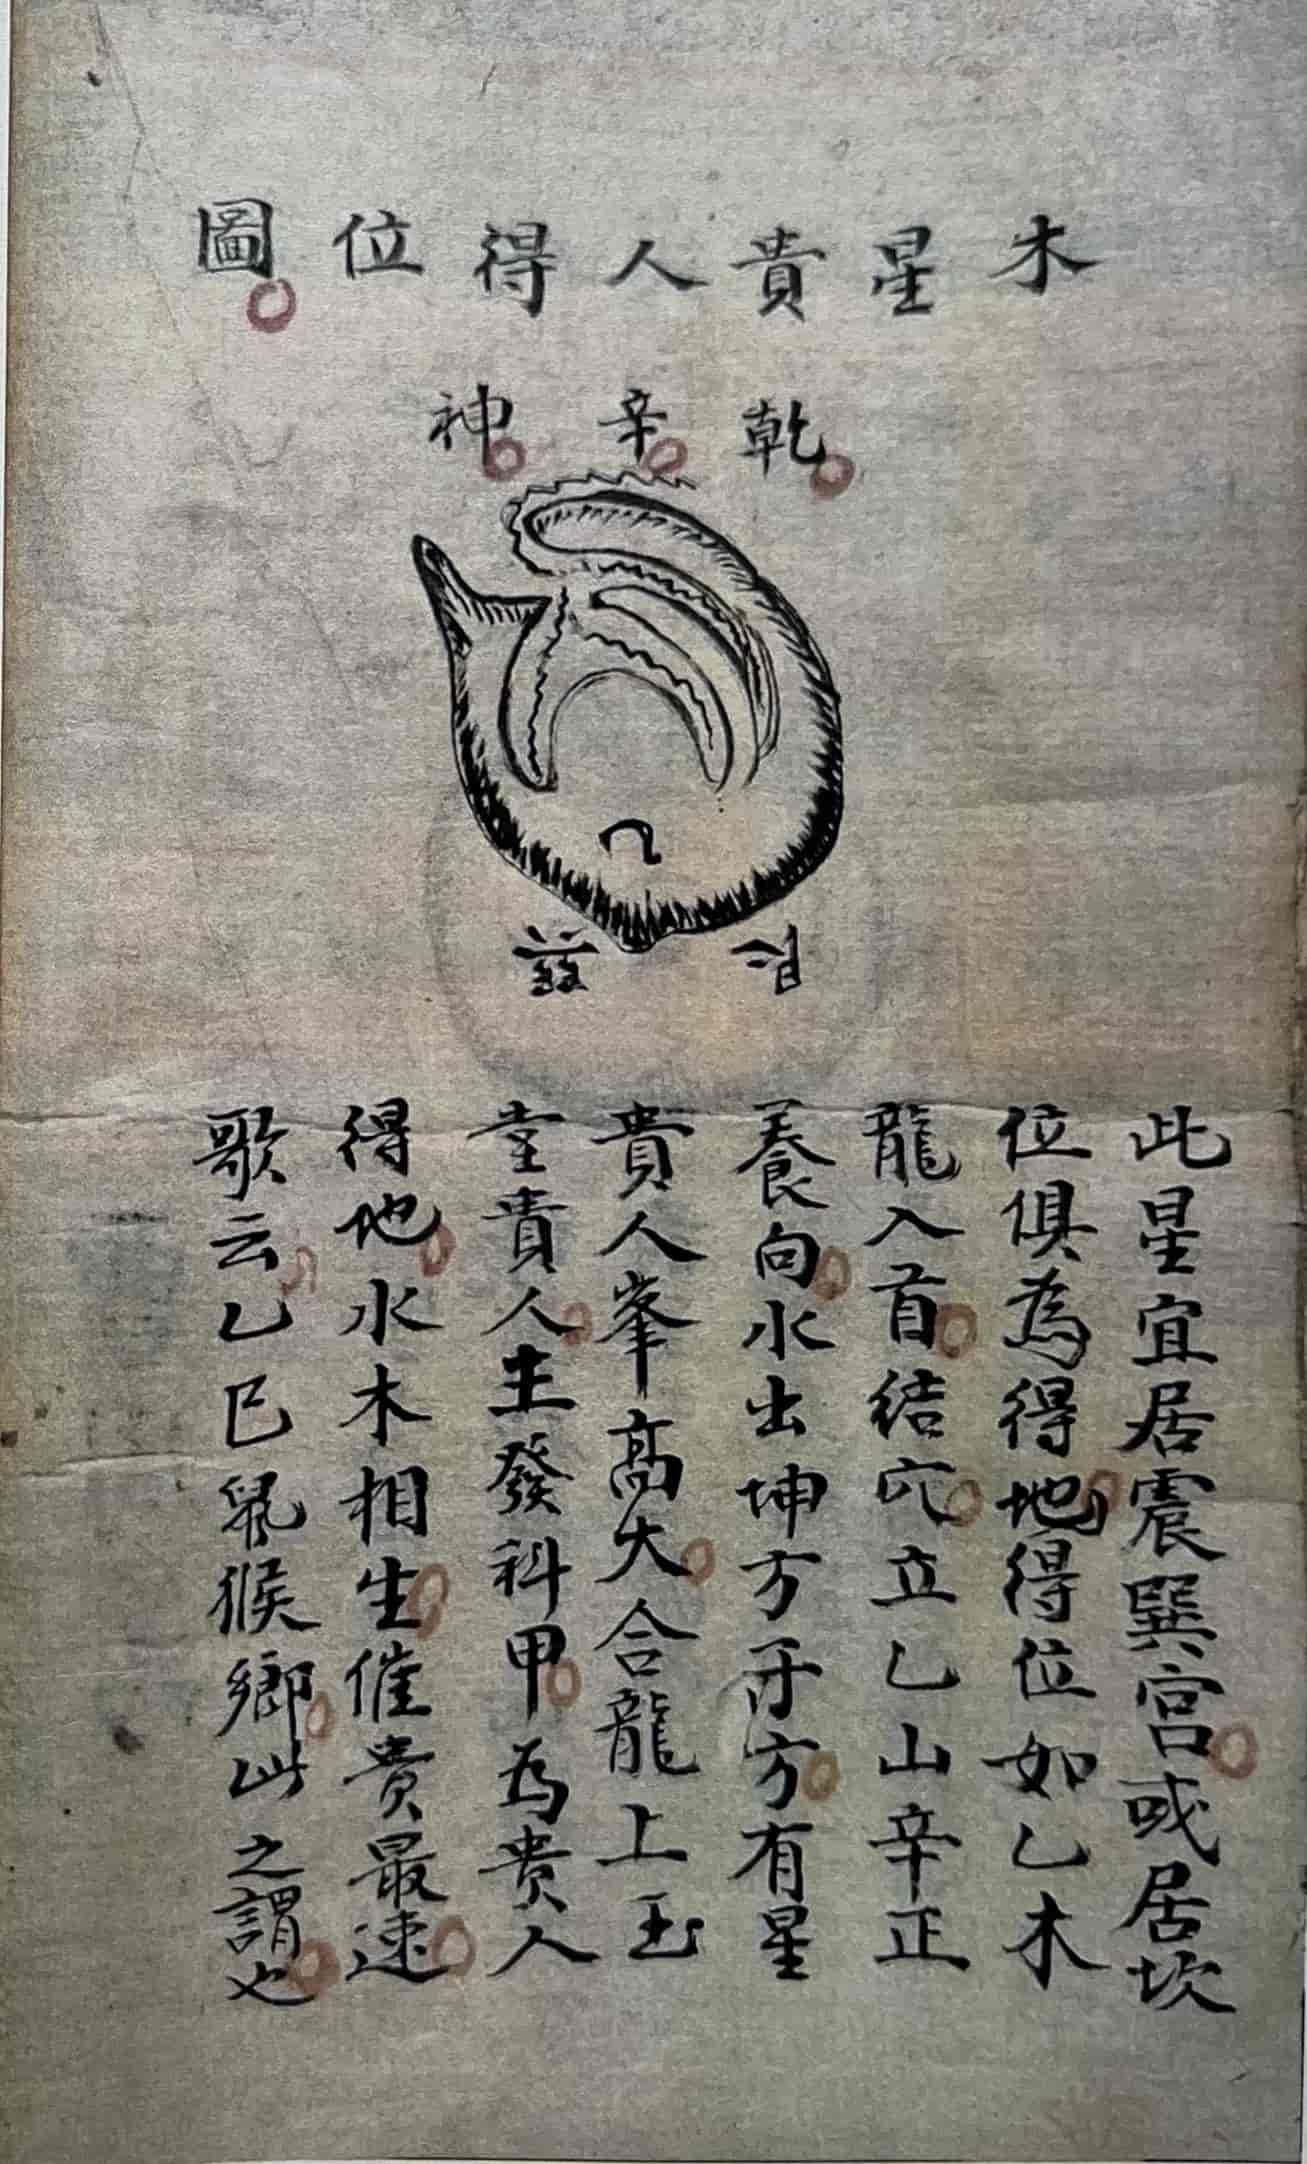 木星貴人得位圖
乾辛神
乙
此星宜居震巽宮或居坎
位俱為得地得位如乙木
龍入首結穴立乙山辛正
養向水出坤方牙方有星
貴人峯高大合龍上玉
堂貴人主發科甲為貴人
得地水木相生催貴最速
歌云乙巳鼠猴鄉此之謂也